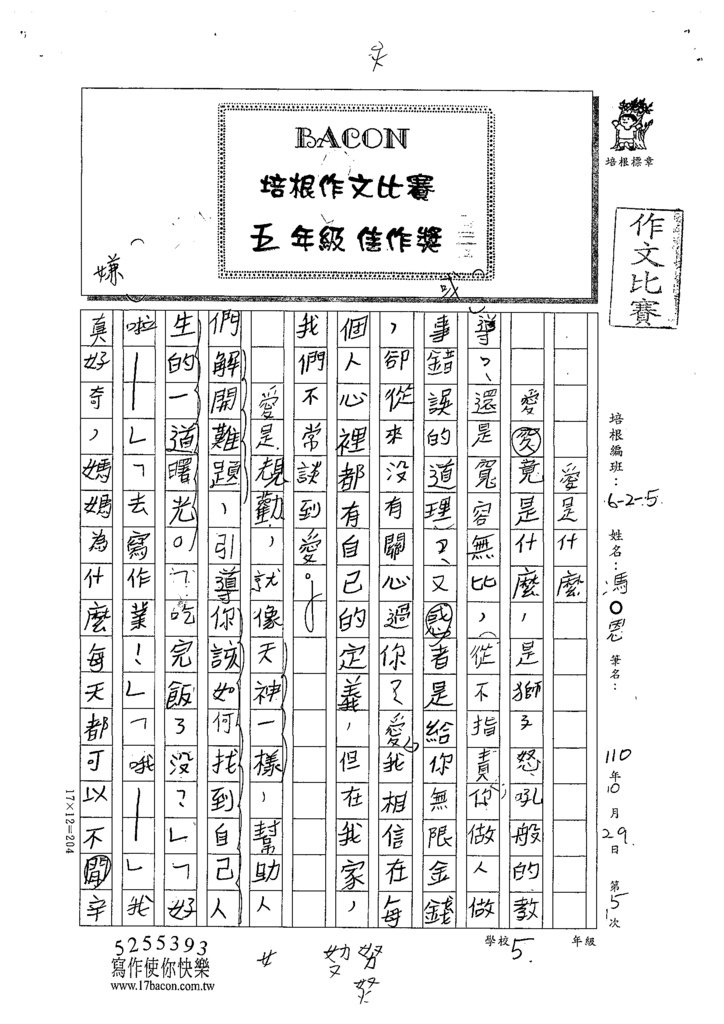 BACON
培根作文比賽
五年級佳作獎
培根標章
作文比賽
培根編班：6-2-5
姓名：馮○恩
筆名：
110年10月29日
第5次
學校5.年級
嫌
或
愛是什麼
愛究竟是什麼，是獅子怒吼般的教
導？、還是寬容無比，從不指責你做人做
事錯誤的道理？又或者是給你無限金錢
，卻從來沒有關心過你了愛。我相信在每
個人心裡都有自己的定義，但在我家，
我們不常談到愛。
愛是規勸，就像天神一樣，幫助人
們解開難題，引導你該如何找到自己人
生的一道曙光。「吃完飯了沒？」「好
啦—」「去寫作業！」「哦—」我
真好奇，媽媽為什麼每天都可以不辭辛
17×12=204
5255393
寫作使你快樂
www.17bacon.com.tw